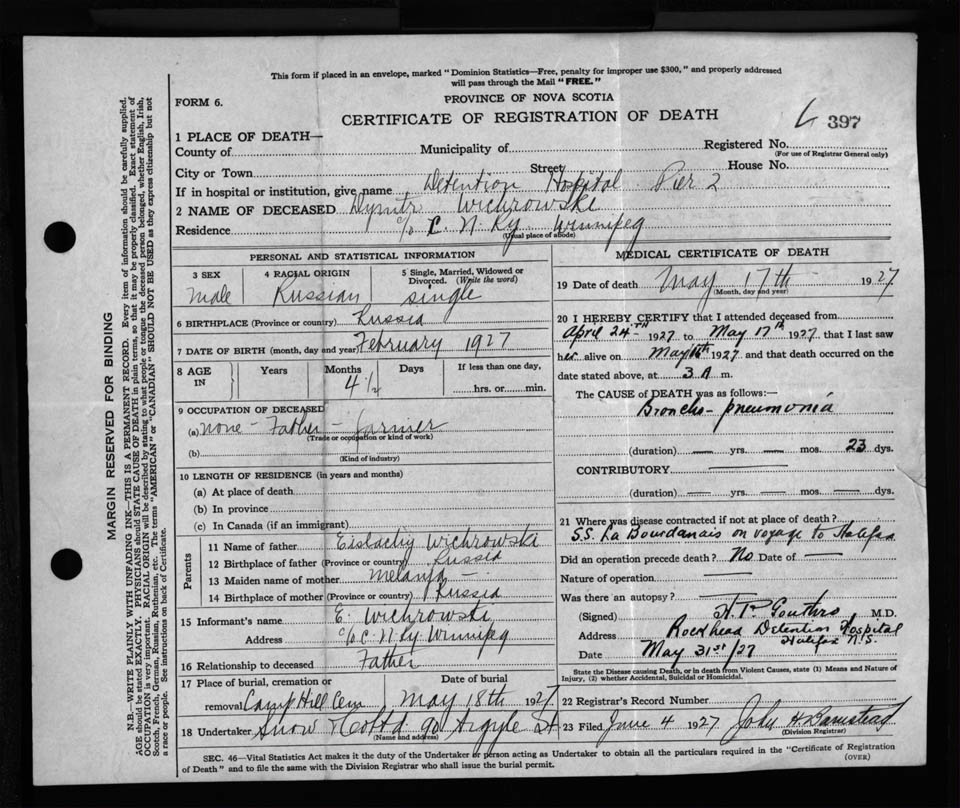 This form if placed in an envelope, marked "Dominion Statistics—Free, penalty for improper use $300," and properly addressed
will pass through the Mail "FREE."
FORM 6.
PROVINCE OF NOVA SCOTIA
CERTIFICATE OF REGISTRATION OF DEATH
397
1 PLACE OF DEATH—
County of Municipality of Registered No.
(For use of Registrar General only)
City or Town Street House No.
If in hospital or institution, give name Detention Hospital Pier 2
2 NAME OF DECEASED Dymitr Wichrowski
Residence c/o C. N Ry Winnipeg
(Usual place of abode)
PERSONAL AND STATISTICAL INFORMATION
3 SEX 4 RACIAL ORIGIN 5 Single, Married, Widowed or
Divorced. (Write the word)
Male Russian single
6 BIRTHPLACE (Province or country) Russia
7 DATE OF BIRTH (month, day and year) February 1927
8 AGE IN Years Months Days If less than one day,
4 1/2 hrs. or min.
9 OCCUPATION OF DECEASED
(a) none - Father - farmer
(Trade or occupation or kind of work)
(b)
(Kind of industry)
10 LENGTH OF RESIDENCE (in years and months)
(a) At place of death
(b) In province
(c) In Canada (if an immigrant)
Parents
11 Name of father Wichrowski
12 Birthplace of father (Province or country) Russia
13 Maiden name of mother Melanja —
14 Birthplace of mother (Province or country) Russia
15 Informant's name E. Wichrowski
Address c/o C. N Ry Winnipeg
16 Relationship to deceased Father
17 Place of burial, cremation or Date of burial
removal Camp Hill Cem May 18th 1927
18 Undertaker Snow & Co Ltd 90 Argyle St
(Name and address)
MEDICAL CERTIFICATE OF DEATH
19 Date of death May 17th 1927
(Month, day and year)
20 I HEREBY CERTIFY that I attended deceased from
April 24TH 1927 to May 17th 1927 that I last saw
him alive on May 16th 1927 and that death occurred on the
date stated above, at 3 A m.
The CAUSE of DEATH was as follows:—
Broncho-pneumonia
(duration) — yrs. — mos. 23 dys.
CONTRIBUTORY —
(duration) — yrs. — mos. — dys.
21 Where was disease contracted if not at place of death?
S.S. La Bourdanais on voyage to Halifax
Did an operation precede death? No Date of —
Nature of operation —
Was there an autopsy? —
(Signed) M.D.
Address Rockhead Detention Hospital
Halifax N.S.
Date May 31st/27
State the Disease causing Death, or in death from Violent Causes, state (1) Means and Nature of
Injury, (2) whether Accidental, Suicidal or Homicidal.
22 Registrar's Record Number
23 Filed June 4 1927 John H. Barnstead
(Division Registrar)
SEC. 46—Vital Statistics Act makes it the duty of the Undertaker or person acting as Undertaker to obtain all the particulars required in the "Certificate of Registration
of Death" and to file the same with the Division Registrar who shall issue the burial permit.
(OVER)
MARGIN RESERVED FOR BINDING
N.B.—WRITE PLAINLY WITH UNFADING INK—THIS IS A PERMANENT RECORD. Every item of information should be carefully supplied.
AGE should be stated EXACTLY. PHYSICIANS should STATE CAUSE OF DEATH in plain terms, so that it may be properly classified. Exact statement of
OCCUPATION is very important. RACIAL ORIGIN will be described by stating to what people or tongue the deceased person belonged, whether English, Irish,
Scotch, French, German, Russian, Ruthenian, etc. The terms "AMERICAN" or "CANADIAN" SHOULD NOT BE USED as they express citizenship but not
a race or people. See instructions on back of Certificate.